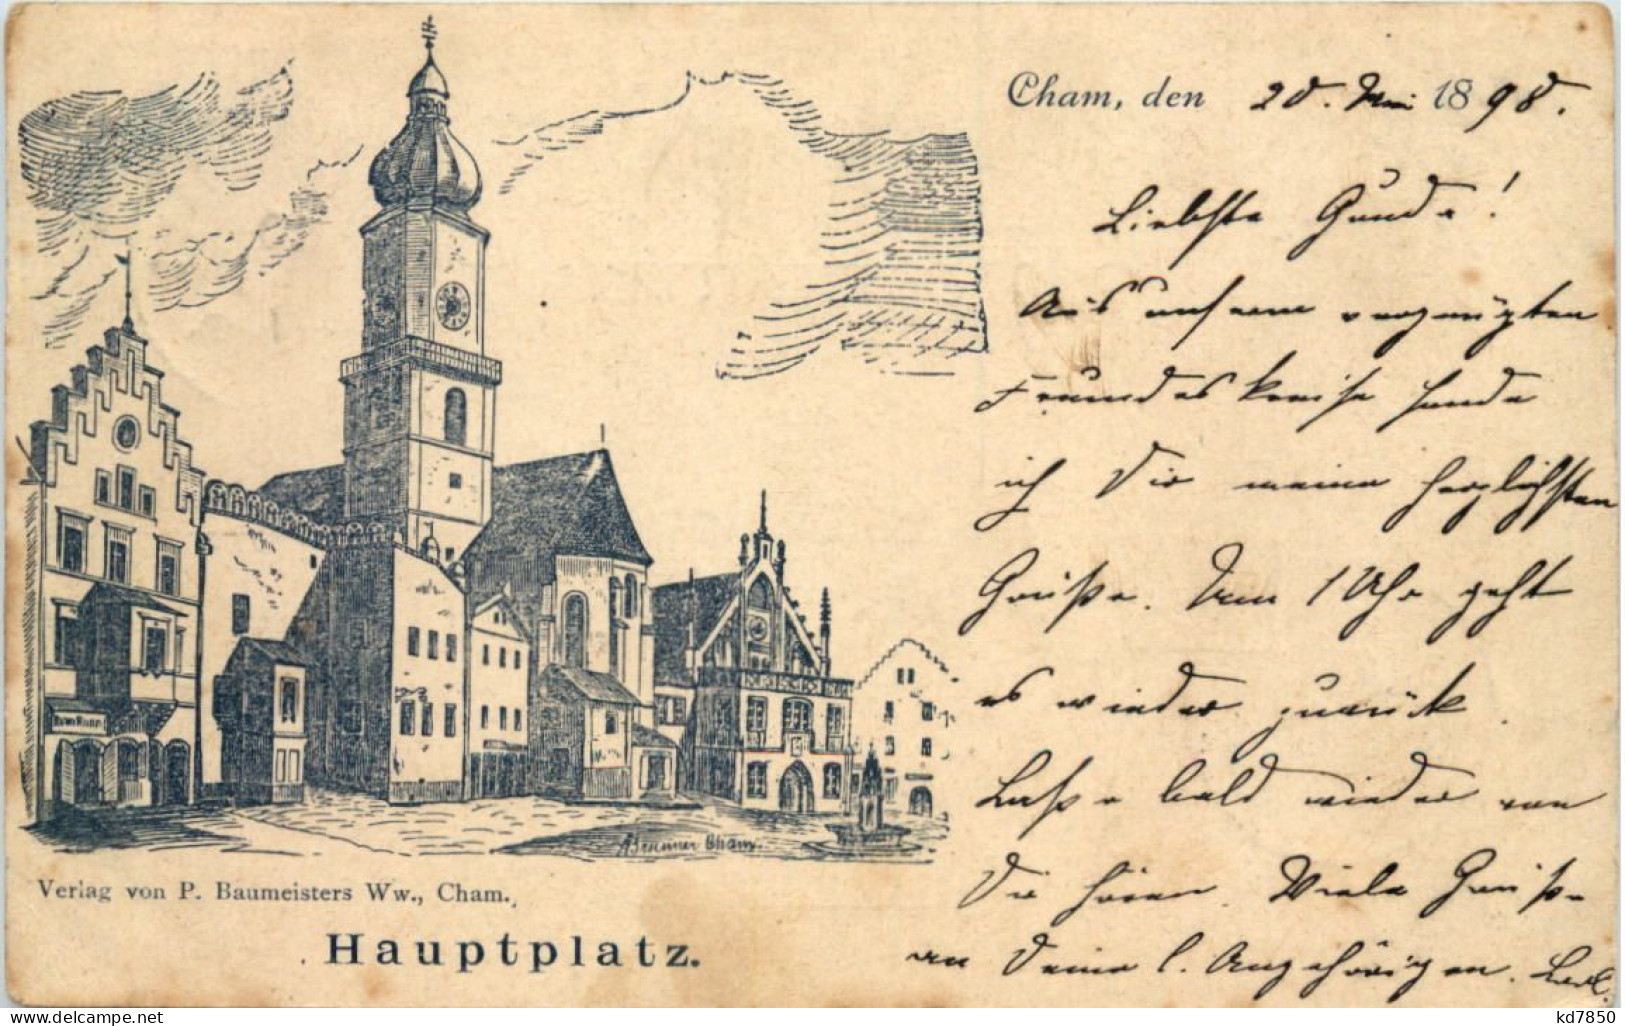 Cham, den 20. Mai 1898.
Liebste Gunda!
Aus unserem vergnügten
Freundeskreise sende
ich Dir meine herzlichsten
Grüße. Um 1 Uhr geht
es wieder zurück.
Lasse bald wieder von
Dir hören. Viele Grüße
an Deine l. Angehörigen.
ABrunner Cham.
Verlag von P. Baumeisters Ww., Cham.
Hauptplatz.
kd7850